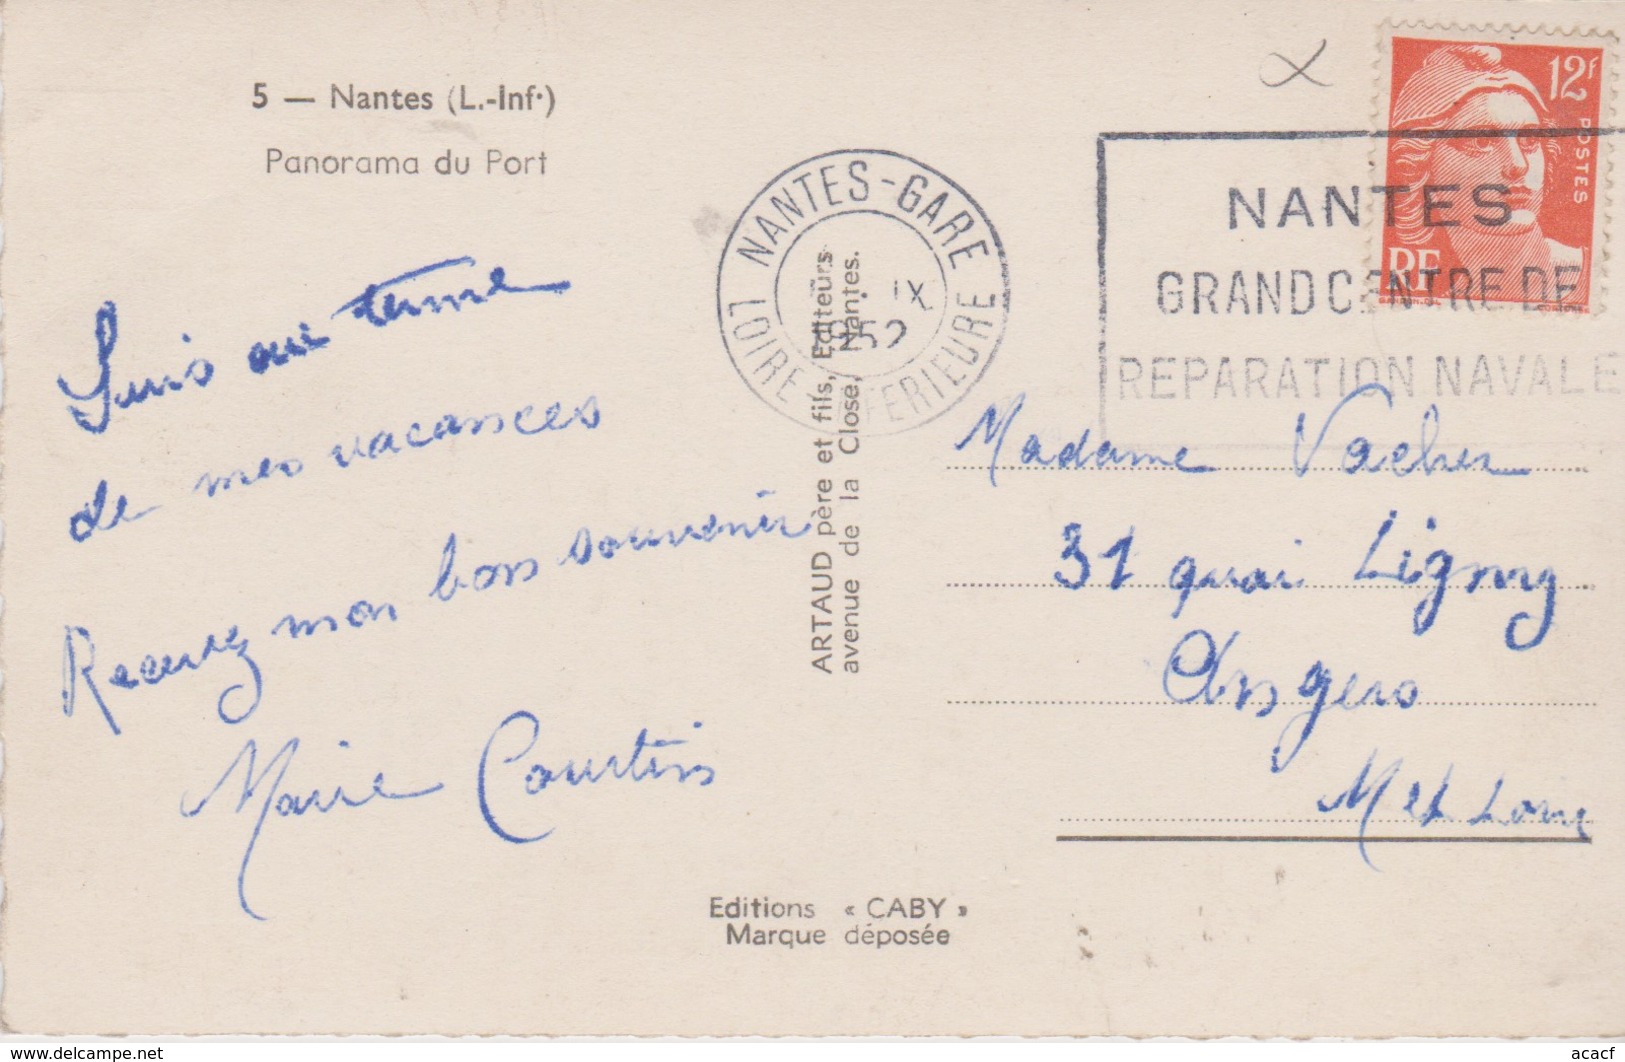 5 — Nantes (L.-Inf.)
Panorama du Port
Suis au terme
de mes vacances
Recevez mon bon souvenir
Marie Courtin
ARTAUD père et fils, Editeurs
avenue de la Close, Nantes.
Editions « CABY »
Marque déposée
NANTES-GARE
IX
1952
LOIRE INFERIEURE
12F
POSTES
RF
NANTES
GRAND CENTRE DE
REPARATION NAVALE
Madame Vacher
31 quai Ligny
Angers
M et Loire
delcampe.net
acacf